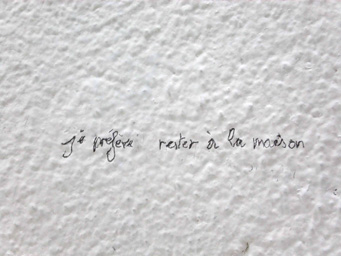 j'ai préféré rester à la maison